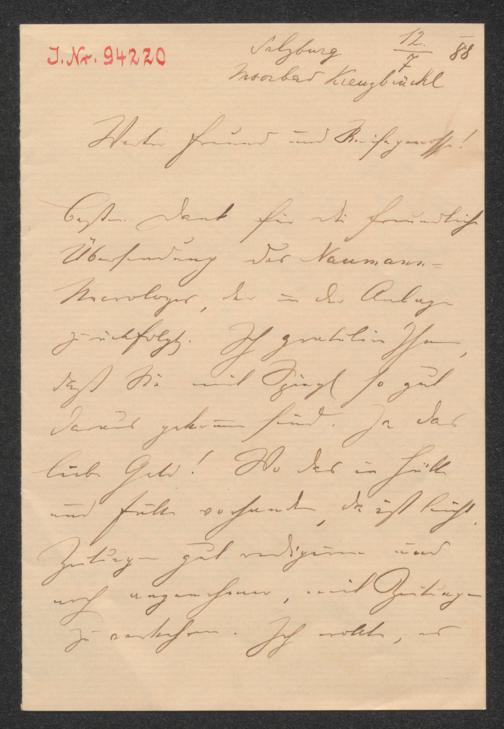 J. Nr. 94220
Salzburg 12./7 88
Moorbad Kreuzbrückl
Werter Freund und Reisegenosse!
Besten Dank für die freundliche
Übersendung des Naumann-
Necrologes, der in der Anlage
zurückfolgt. Ich gratulire Ihnen,
daß Sie mit Spiegl so gut
daraus gekommen sind. Ja das
liebe Geld! Wo das in Hülle
und Fülle vorhanden, da ist leicht,
Zeitungen gut redigieren und
noch angenehmer, mit Zeitungen
zu verkehren. Ich wollte, es